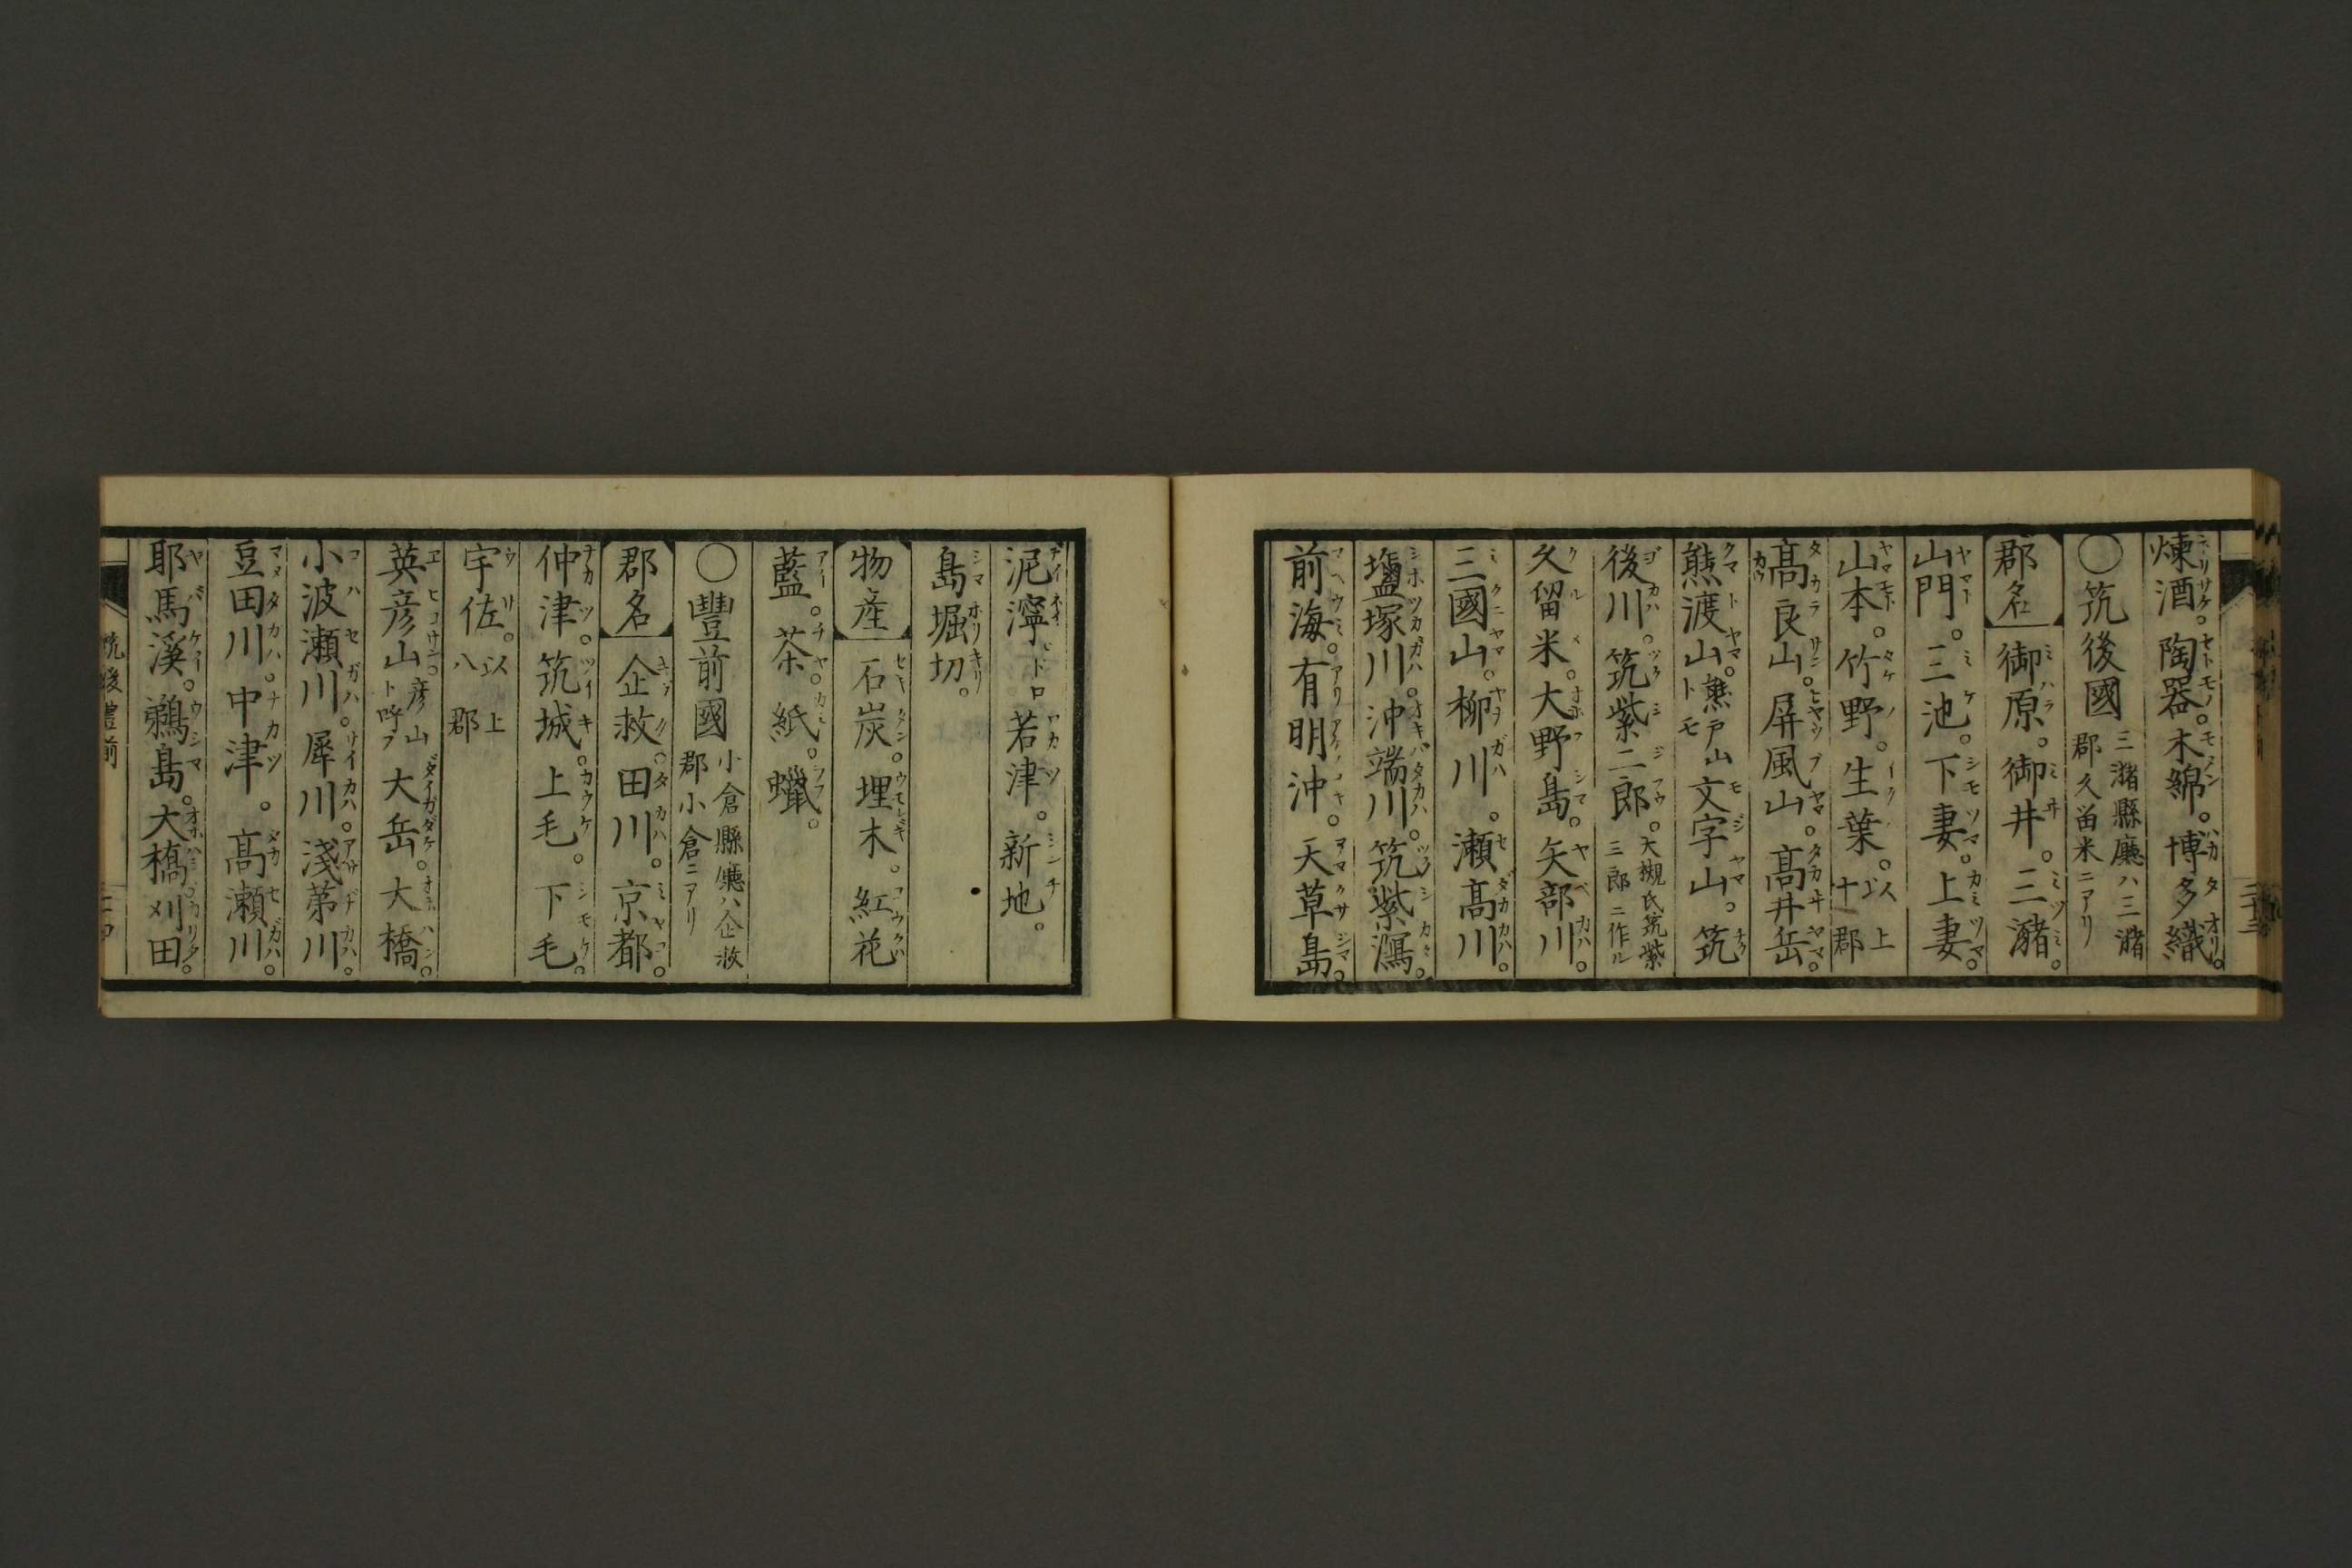 煉酒。陶器。木綿。博多織。
〇筑後國 三潴縣廳ハ三潴郡久留米ニアリ
郡名 御原。御井。三潴。
山門。三池。下妻。上妻。
山本。竹野。生葉。以上十郡
髙良山。屏風山。髙井岳。
熊渡山。熊戸山トモ 文字山。筑
後川。筑紫二郎。大槻氏筑紫三郎ニ作ル
久留米。大野島。矢部川。
三國山。柳川。瀬髙川。
塩塚川。沖端川。筑紫瀉。
前海。有明沖。天草島。
泥濘 若津。新地。
島堀切。
物産 石炭。埋木。紅花
藍。茶。紙。蠟。
〇豐前國 小倉縣廳ハ企救郡小倉ニアリ
郡名 企救。田川。京都。
仲津。筑城。上毛。下毛。
宇佐。以上八郡
英彦山。彦山ト呼フ 大岳。大橋。
小波瀬川。犀川。淺茅川。
豆田川。中津。髙瀬川。
耶馬溪。鵜島。大橋。刈田。
筑後豊前